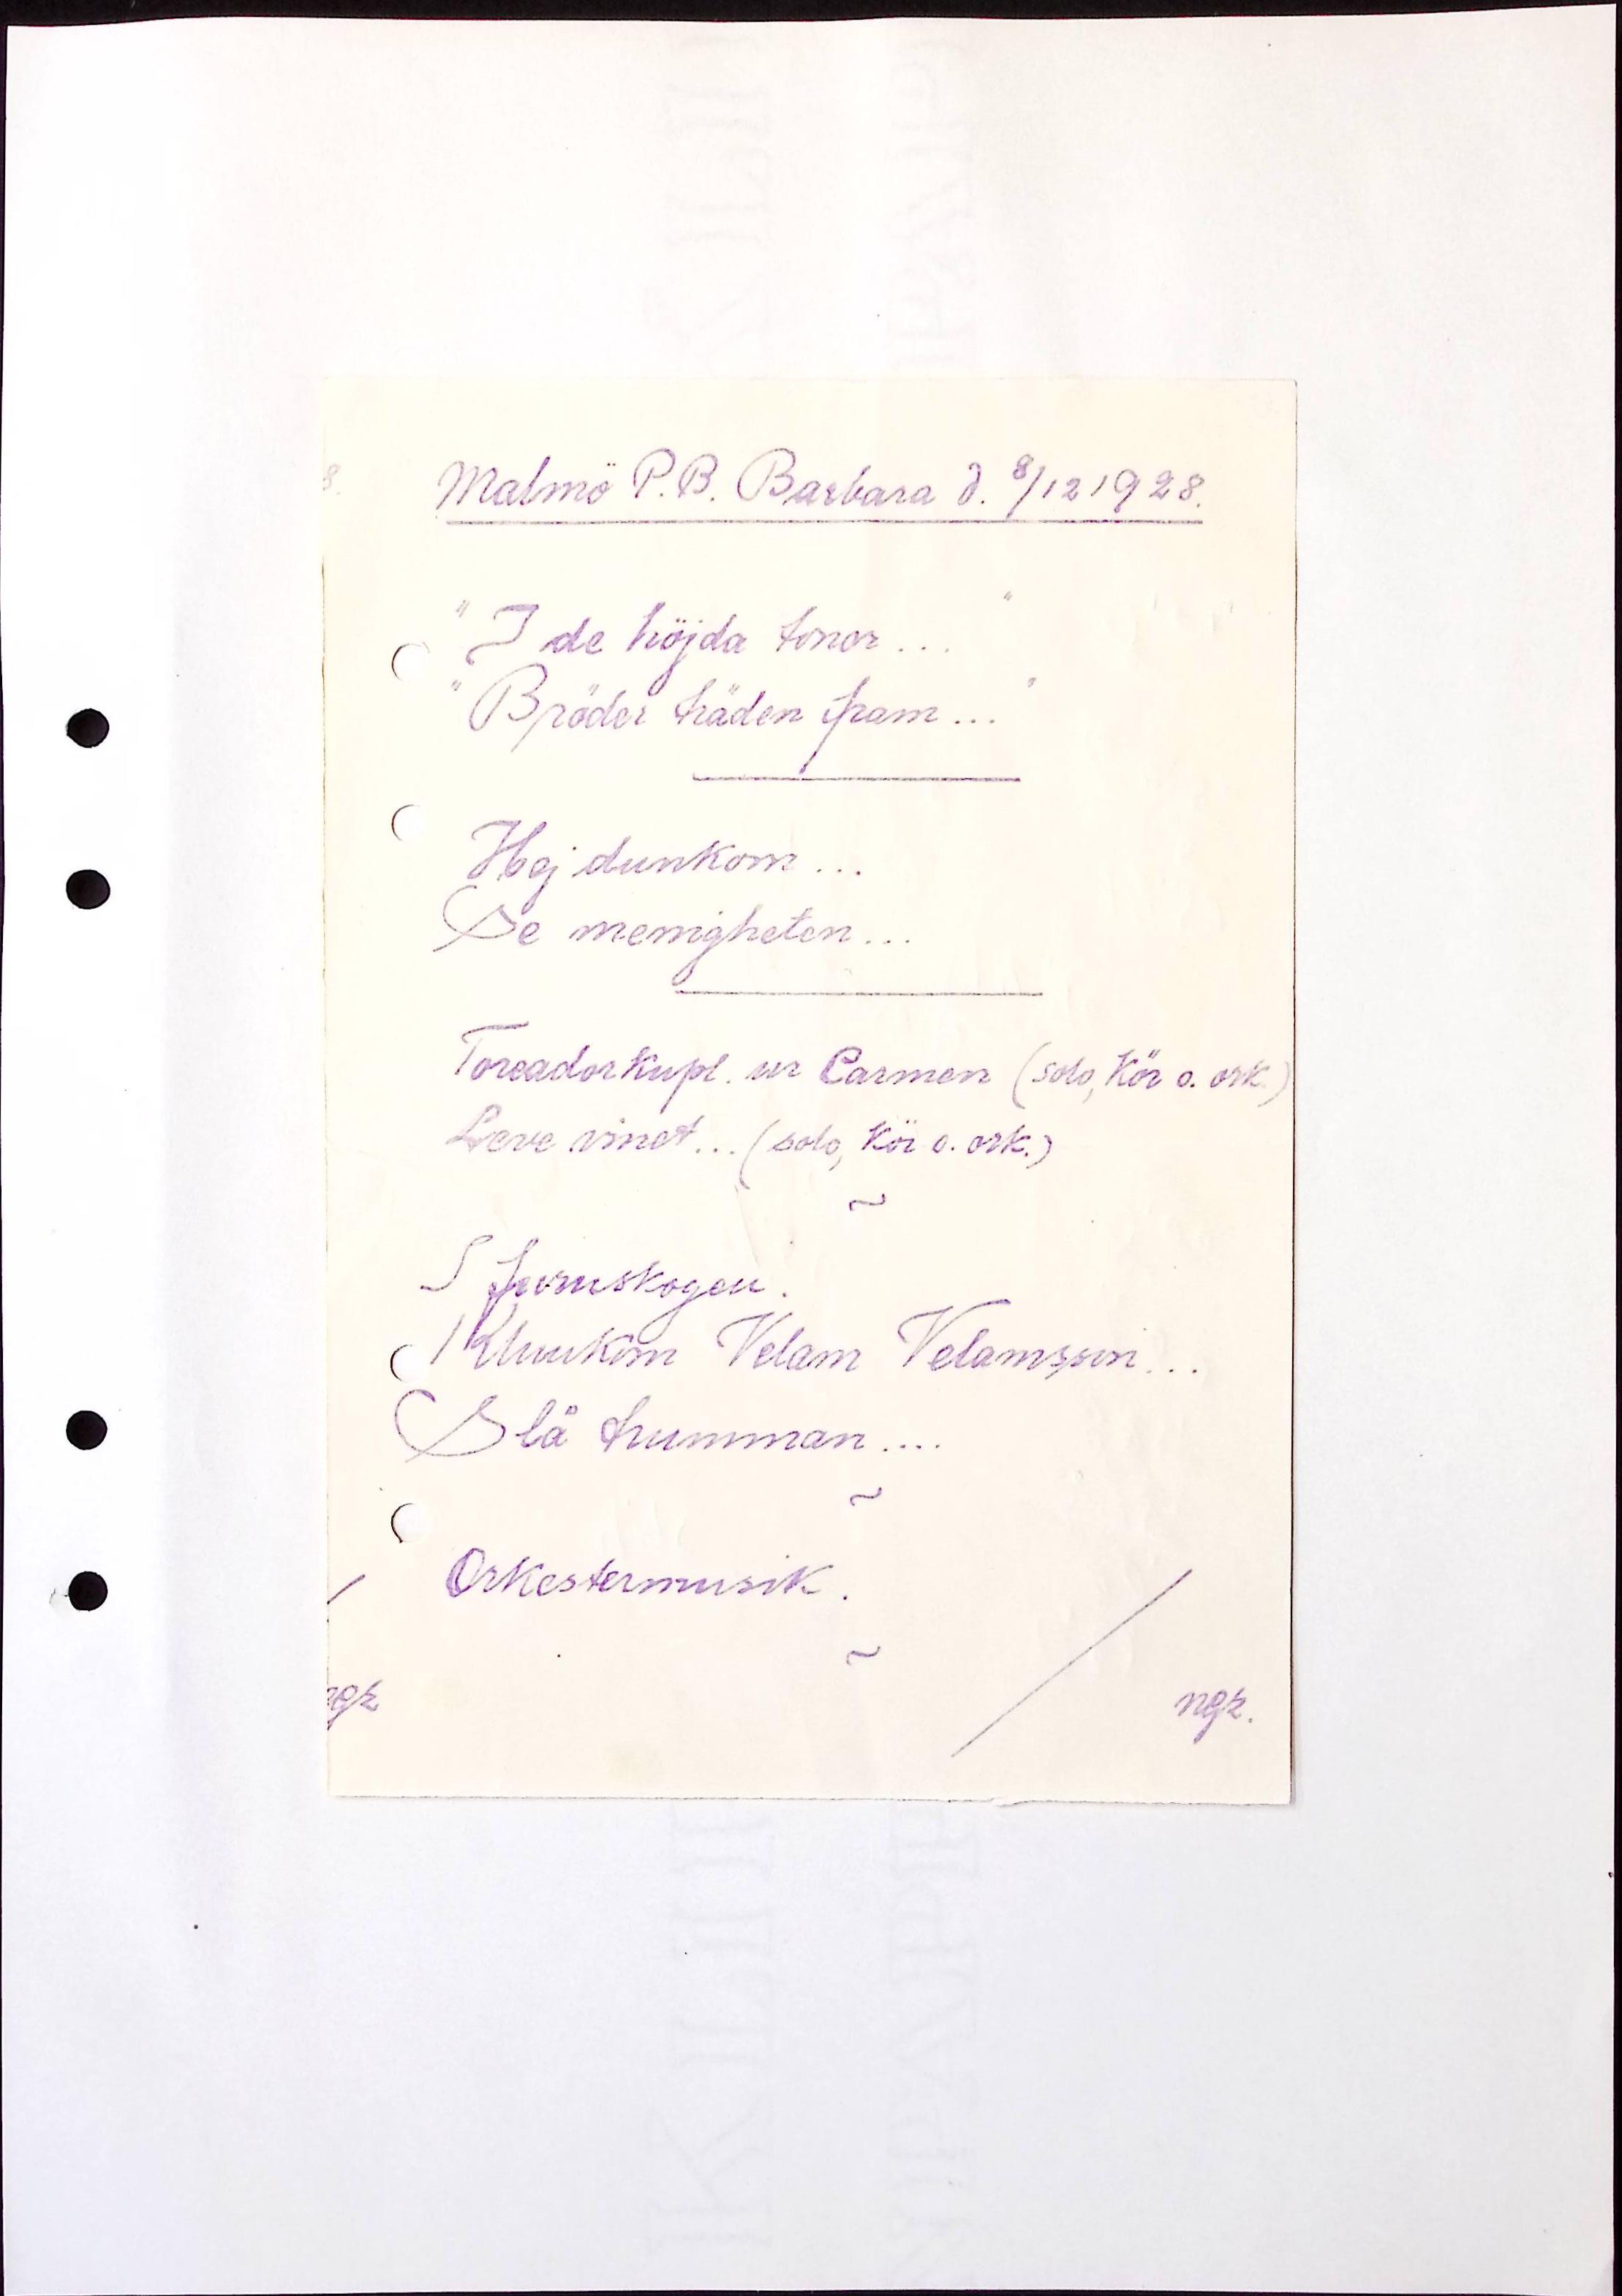 8. Malmö P.B. Barbara d. 8/12 1928.
"I de höjda tonor..."
"Bröder träden fram..."
Hej dunkom...
Se menigheten...
Toreadorkupl. ur Carmen (solo, kör o. ork.)
Leve vinet... (solo, kör o. ork.)
~
I furuskogen.
Klunkom Velam Velamsson...
Slå trumman....
~
Orkestermusik.
~
ngr ngr.